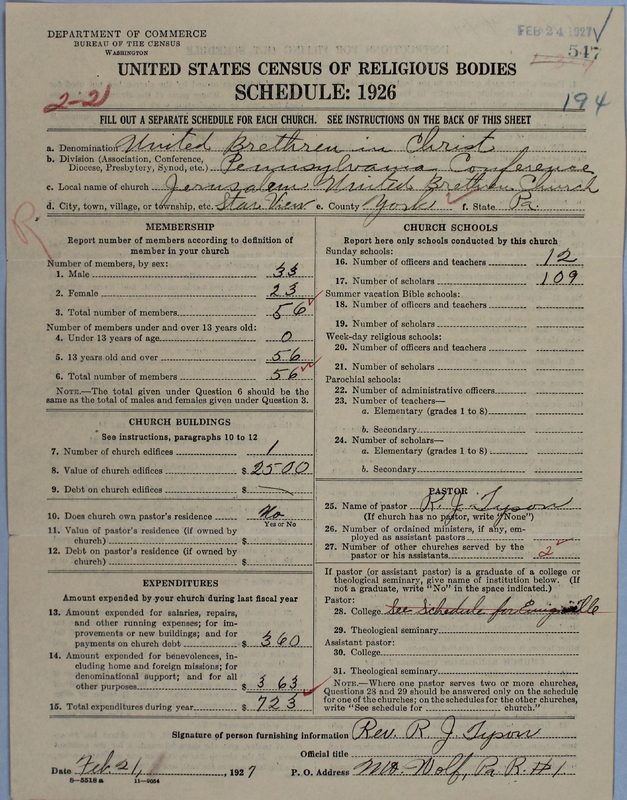 DEPARTMENT OF COMMERCE
BUREAU OF THE CENSUS
WASHINGTON
FEB 24 1927
547
UNITED STATES CENSUS OF RELIGIOUS BODIES
SCHEDULE: 1926
2-21
194
FILL OUT A SEPARATE SCHEDULE FOR EACH CHURCH. SEE INSTRUCTIONS ON THE BACK OF THIS SHEET
a. Denomination United Brethren in Christ
b. Division (Association, Conference, Diocese, Presbytery, Synod, etc.) Pennsylvania Conference
c. Local name of church Jerusalem United Brethren Church
d. City, town, village, or township, etc. Starview e. County York f. State Pa.
R
MEMBERSHIP
Report number of members according to definition of
member in your church
Number of members, by sex:
1. Male 33
2. Female 23
3. Total number of members 56
Number of members under and over 13 years old:
4. Under 13 years of age 0
5. 13 years old and over 56
6. Total number of members 56
NOTE.—The total given under Question 6 should be
same as the total of males and females given under Question 3.
CHURCH BUILDINGS
See instructions, paragraphs 10 to 12
7. Number of church edifices 1
8. Value of church edifices $ 2500
9. Debt on church edifices $
10. Does church own pastor's residence No
Yes or No
11. Value of pastor's residence (if owned by
church) $
12. Debt on pastor's residence (if owned by
church) $
EXPENDITURES
Amount expended by your church during last fiscal year
13. Amount expended for salaries, repairs,
and other running expenses; for im-
provements or new buildings; and for
payments on church debt $ 360
14. Amount expended for benevolences, in-
cluding home and foreign missions; for
denominational support; and for all
other purposes $ 363
15. Total expenditures during year $ 723
CHURCH SCHOOLS
Report here only schools conducted by this church
Sunday schools:
16. Number of officers and teachers 12
17. Number of scholars 109
Summer vacation Bible schools:
18. Number of officers and teachers
19. Number of scholars
Week-day religious schools:
20. Number of officers and teachers
21. Number of scholars
Parochial schools:
22. Number of administrative officers
23. Number of teachers—
a. Elementary (grades 1 to 8)
b. Secondary
24. Number of scholars—
a. Elementary (grades 1 to 8)
b. Secondary
PASTOR
25. Name of pastor R. J. Tyson
(If church has no pastor, write "None")
26. Number of ordained ministers, if any, em-
ployed as assistant pastors
27. Number of other churches served by the
pastor or his assistants 2
If pastor (or assistant pastor) is a graduate of a college or
theological seminary, give name of institution below. (If
not a graduate, write "No" in the space indicated.)
Pastor:
28. College See Schedule for Emigsville
29. Theological seminary
Assistant pastor:
30. College
31. Theological seminary
NOTE.—Where one pastor serves two or more churches,
Questions 28 and 29 should be answered only on the schedule
for one of the churches; on the schedules for the other churches,
write "See schedule for church."
Signature of person furnishing information Rev. R. J. Tyson
Official title
Date Feb 21, 1927 P. O. Address Mt. Wolf, Pa R. #1
8-5518a 11-9054